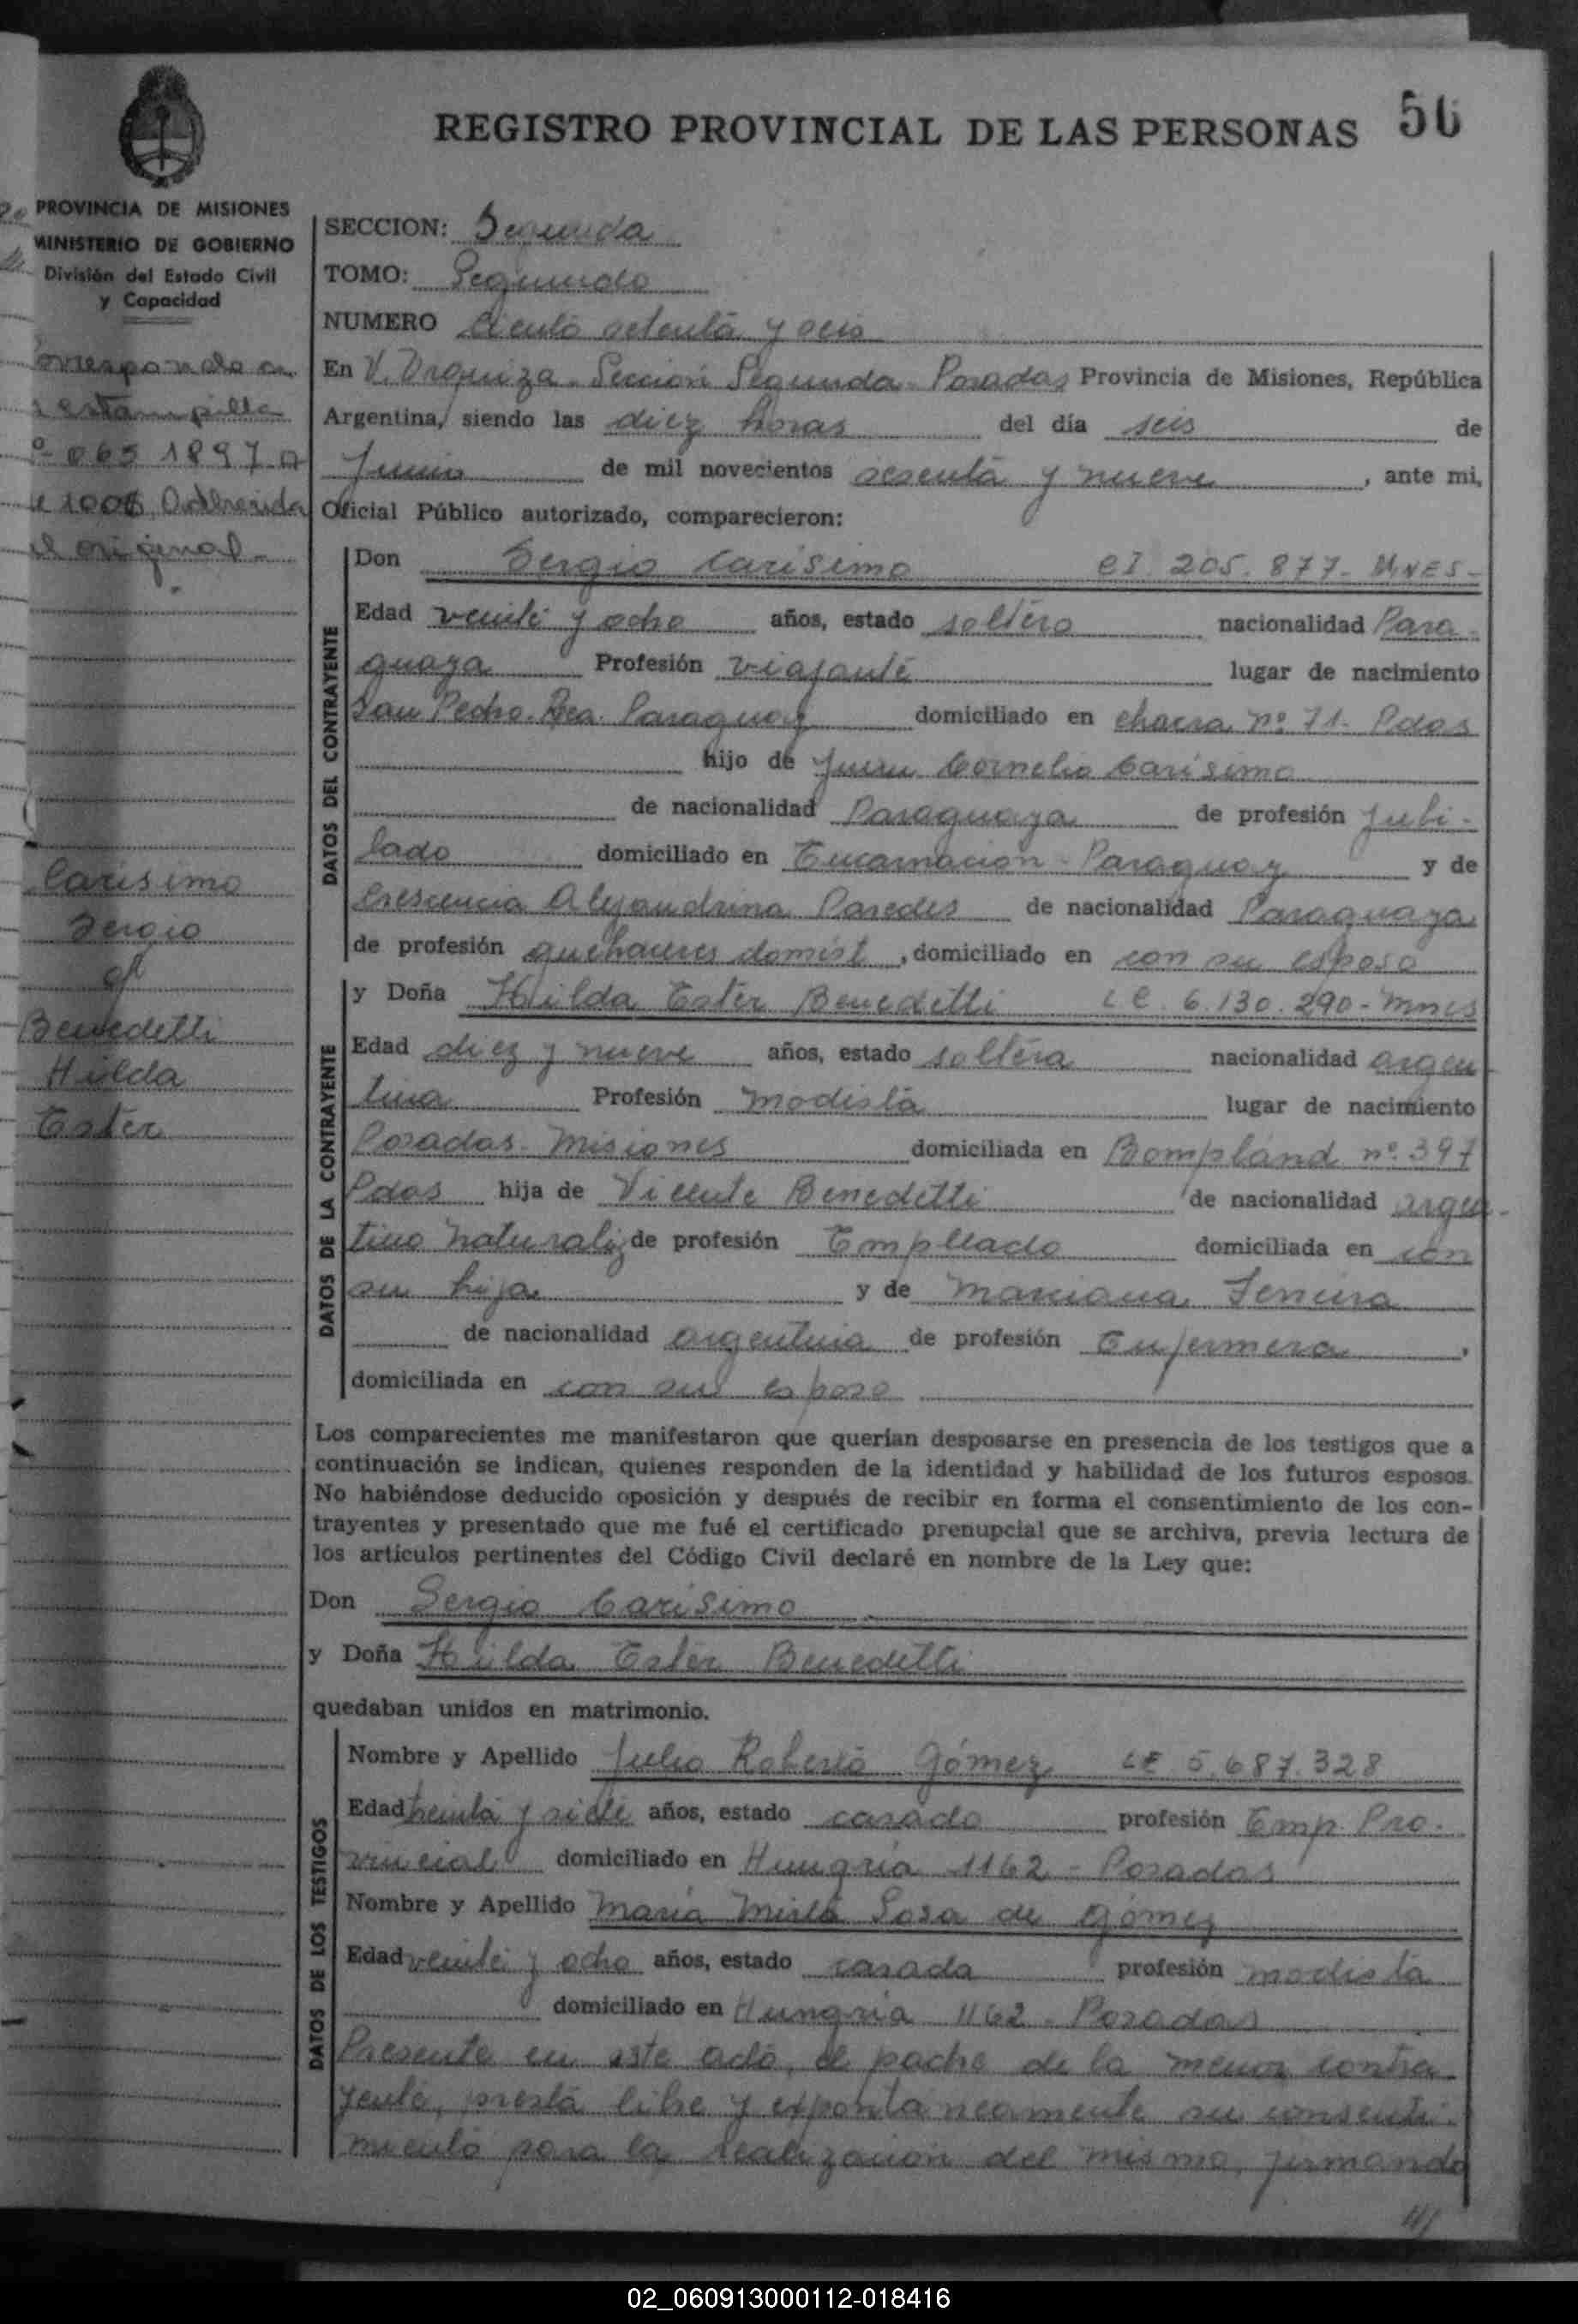 REGISTRO PROVINCIAL DE LAS PERSONAS 56
PROVINCIA DE MISIONES
MINISTERIO DE GOBIERNO
División del Estado Civil
y Capacidad
Corresponde a
estampilla
065 1897 A
1000 Adherida
el original
Carisimo
Sergio
Benedetti
Hilda
Ester
SECCION: Segunda
TOMO: Segundo
NUMERO Ciento setenta y seis
En V. Urquiza - Sección Segunda - Posadas Provincia de Misiones, República
Argentina, siendo las diez horas del día seis de
Junio de mil novecientos sesenta y nueve, ante mi,
Oficial Público autorizado, comparecieron:
DATOS DEL CONTRAYENTE
Don Sergio Carisimo CI. 205.877 - MNES -
Edad veinte y ocho años, estado soltero nacionalidad Para-
guaya Profesión viajante lugar de nacimiento
San Pedro - Rca. Paraguay domiciliado en chacra nº 71 - Pdas
hijo de Juan Cornelio Carisimo
de nacionalidad Paraguaya de profesión Jubi-
lado domiciliado en Encarnación - Paraguay y de
Crescencia Alejandrina Paredes de nacionalidad Paraguaya
de profesión quehaceres domést, domiciliado en con su esposo
DATOS DE LA CONTRAYENTE
y Doña Hilda Ester Benedetti LC. 6.130.290 - Mnes
Edad diez y nueve años, estado soltera nacionalidad argen
tina Profesión modista lugar de nacimiento
Posadas - Misiones domiciliada en Bompland nº 397
Pdas hija de Vicente Benedetti de nacionalidad argen-
tino naturaliz de profesión Empleado domiciliada en con
su hija y de Marciana Ferreira
de nacionalidad argentina de profesión Enfermera,
domiciliada en con su esposo
Los comparecientes me manifestaron que querían desposarse en presencia de los testigos que a
continuación se indican, quienes responden de la identidad y habilidad de los futuros esposos.
No habiéndose deducido oposición y después de recibir en forma el consentimiento de los con-
trayentes y presentado que me fué el certificado prenupcial que se archiva, previa lectura de
los artículos pertinentes del Código Civil declaré en nombre de la Ley que:
Don Sergio Carisimo
y Doña Hilda Ester Benedetti
quedaban unidos en matrimonio.
DATOS DE LOS TESTIGOS
Nombre y Apellido Julio Roberto Gómez LE 5.687.328
Edad treinta y siete años, estado casado profesión Emp. Pro-
vincial domiciliado en Hungria 1162 - Posadas
Nombre y Apellido María Mirta Sosa de Gómez
Edad veinte y ocho años, estado casada profesión modista
domiciliado en Hungria 1162 - Posadas
Presente en este acto, el padre de la menor contra-
yente, presta libre y expontaneamente su consenti-
miento para la realización del mismo, firmando
///
02_060913000112-018416